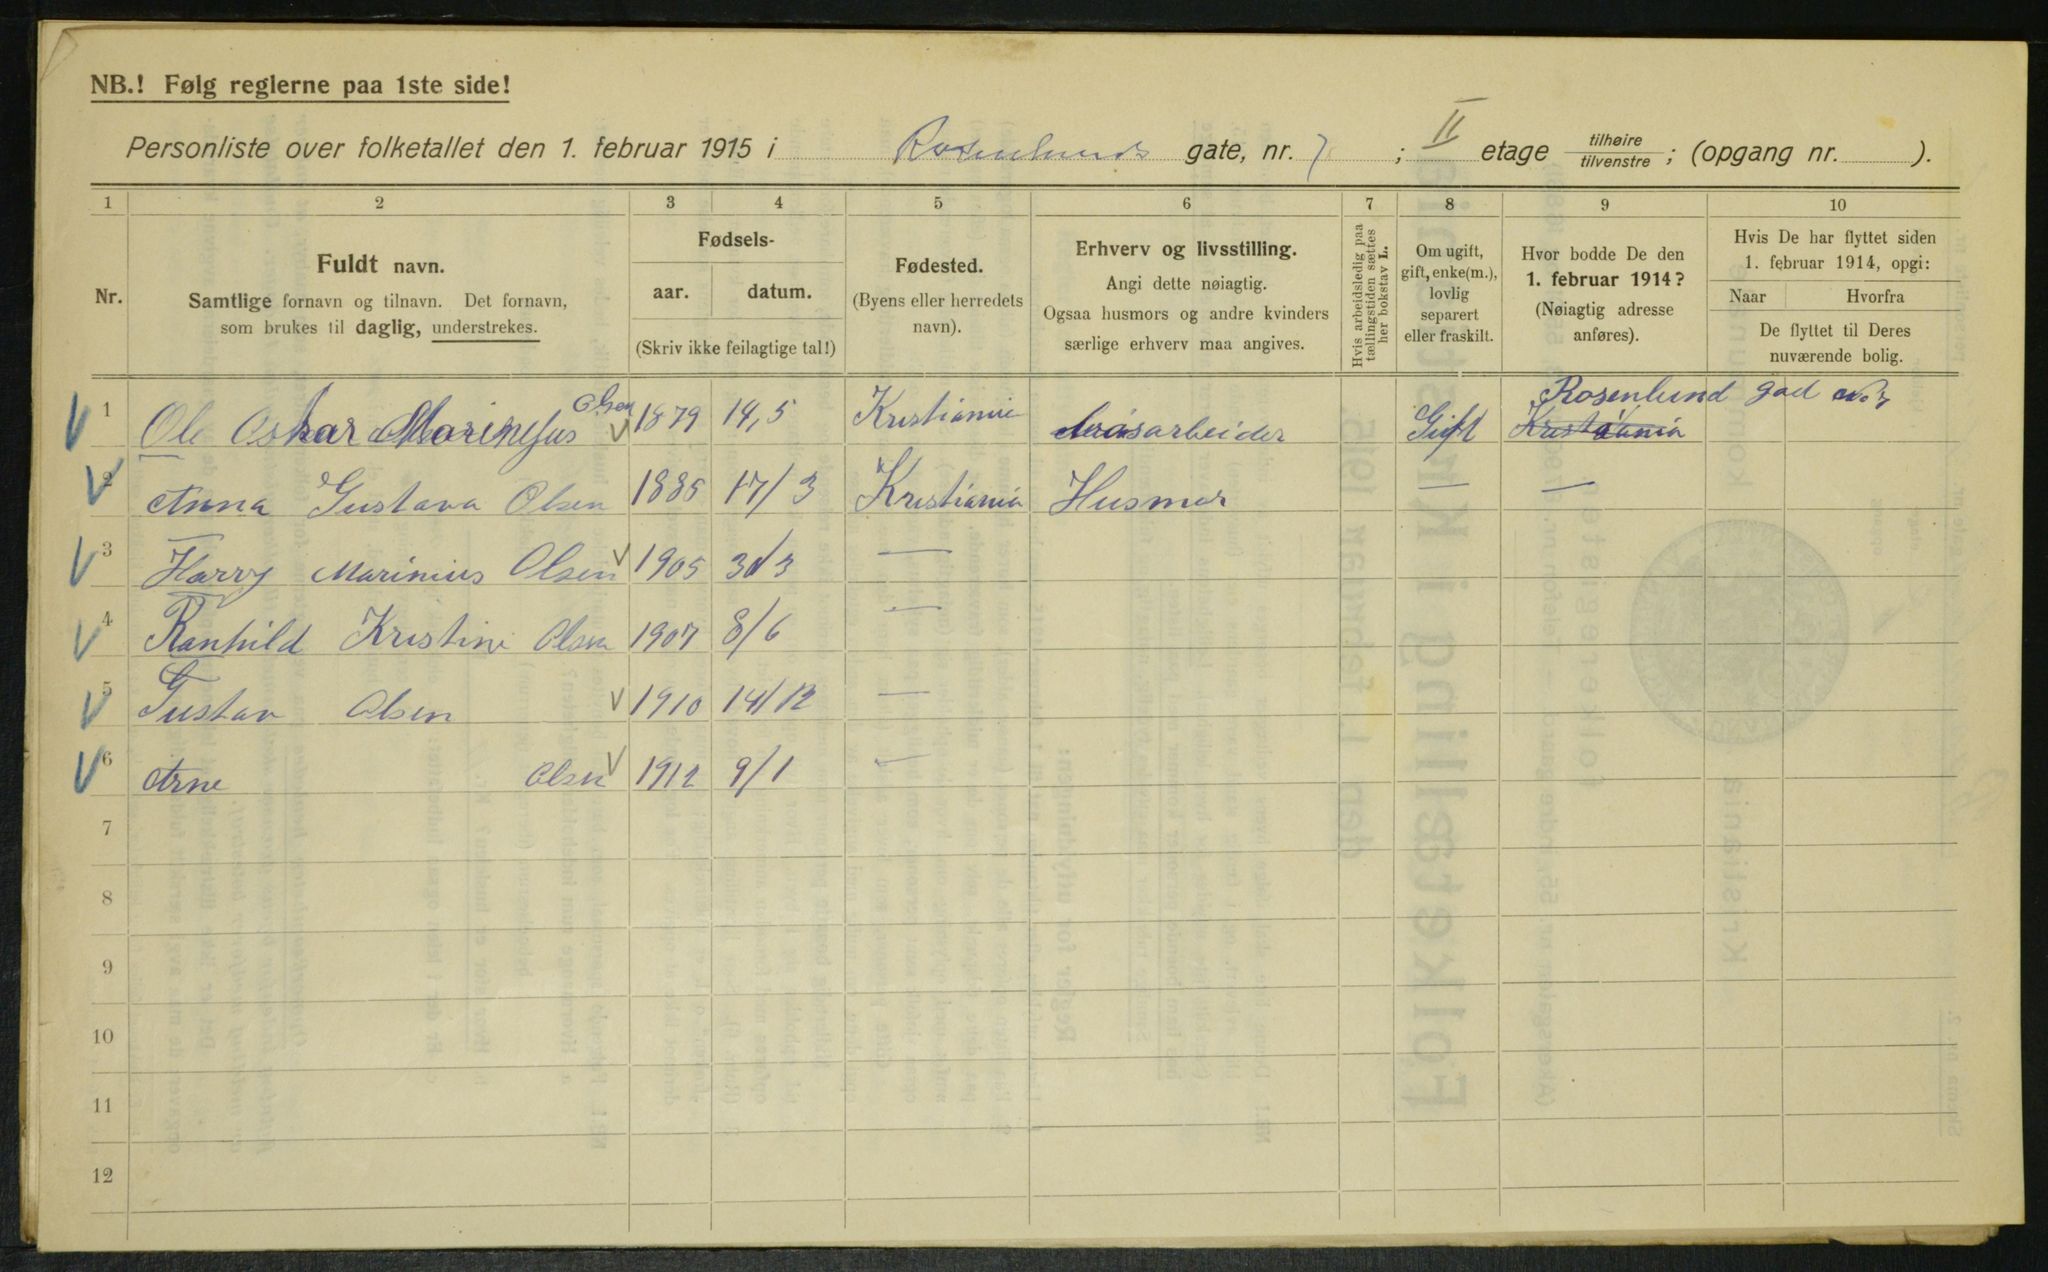 NB.! Følg reglerne paa 1ste side!
Personliste over folketallet den 1. februar 1915 i Rosenlunds gate, nr. 7; II etage tilhøire/tilvenstre; (opgang nr. ).
1 2 3 4 5 6 7 8 9 10
Nr.
Fuldt navn.
Samtlige fornavn og tilnavn. Det fornavn,
som brukes til daglig, understrekes.
Fødsels-
aar. datum.
(Skriv ikke feilagtige tal!)
Fødested.
(Byens eller herredets
navn).
Erhverv og livsstilling.
Angi dette nøiagtig.
Ogsaa husmors og andre kvinders
særlige erhverv maa angives.
Hvis arbeidsledig paa
tællingstiden sættes
her bokstav L.
Om ugift,
gift, enke(m.),
lovlig
separert
eller fraskilt.
Hvor bodde De den
1. februar 1914?
(Nøiagtig adresse
anføres).
Hvis De har flyttet siden
1. februar 1914, opgi:
Naar Hvorfra
De flyttet til Deres
nuværende bolig.
1 Ole Oskar Marinius Olsen 1879 14,5 Kristiania Gift Rosenlund gad No 7 Kristiania
2 Anna Gustava Olsen 1885 17/3 Kristiania Husmor — —
3 Harry Marinius Olsen 1905 3/3 —
4 Ranhild Kristine Olsen 1907 8/6 —
5 Gustav Olsen 1910 14/12 —
6 Arne Olsen 1912 9/1 —
7
8
9
10
11
12